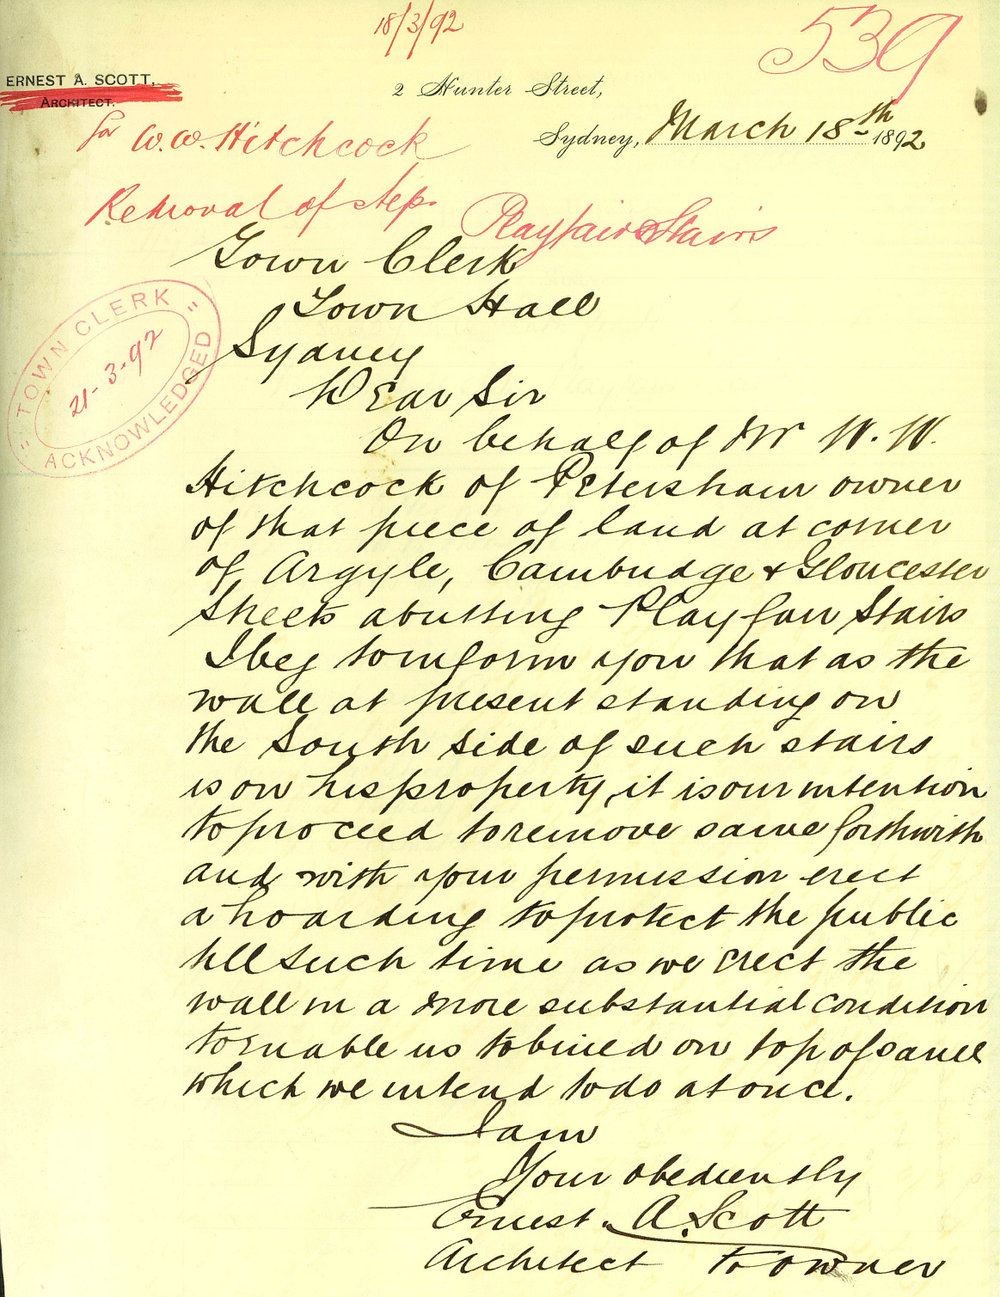 18/3/92
539
ERNEST A. SCOTT,
ARCHITECT.
2 Hunter Street,
Sydney, March 18th 1892
for W. W. Hitchcock
Removal of steps Playfair Stairs
Town Clerk
Town Hall
Sydney
Dear Sir
On behalf of Mr W. W.
Hitchcock of Petersham owner
of that piece of land at corner
of Argyle, Cambridge & Gloucester
Streets abutting Playfair Stairs
I beg to inform you that as the
wall at present standing on
the South side of such stairs
is on his property, it is our intention
to proceed to remove same forthwith
and with your permission erect
a hoarding to protect the public
till such time as we erect the
wall in a more substantial condition
to enable us to build on top of same
which we intend to do at once.
I am
Your obediently
Ernest A. Scott
Architect to owner
TOWN CLERK
21-3-92
ACKNOWLEDGED